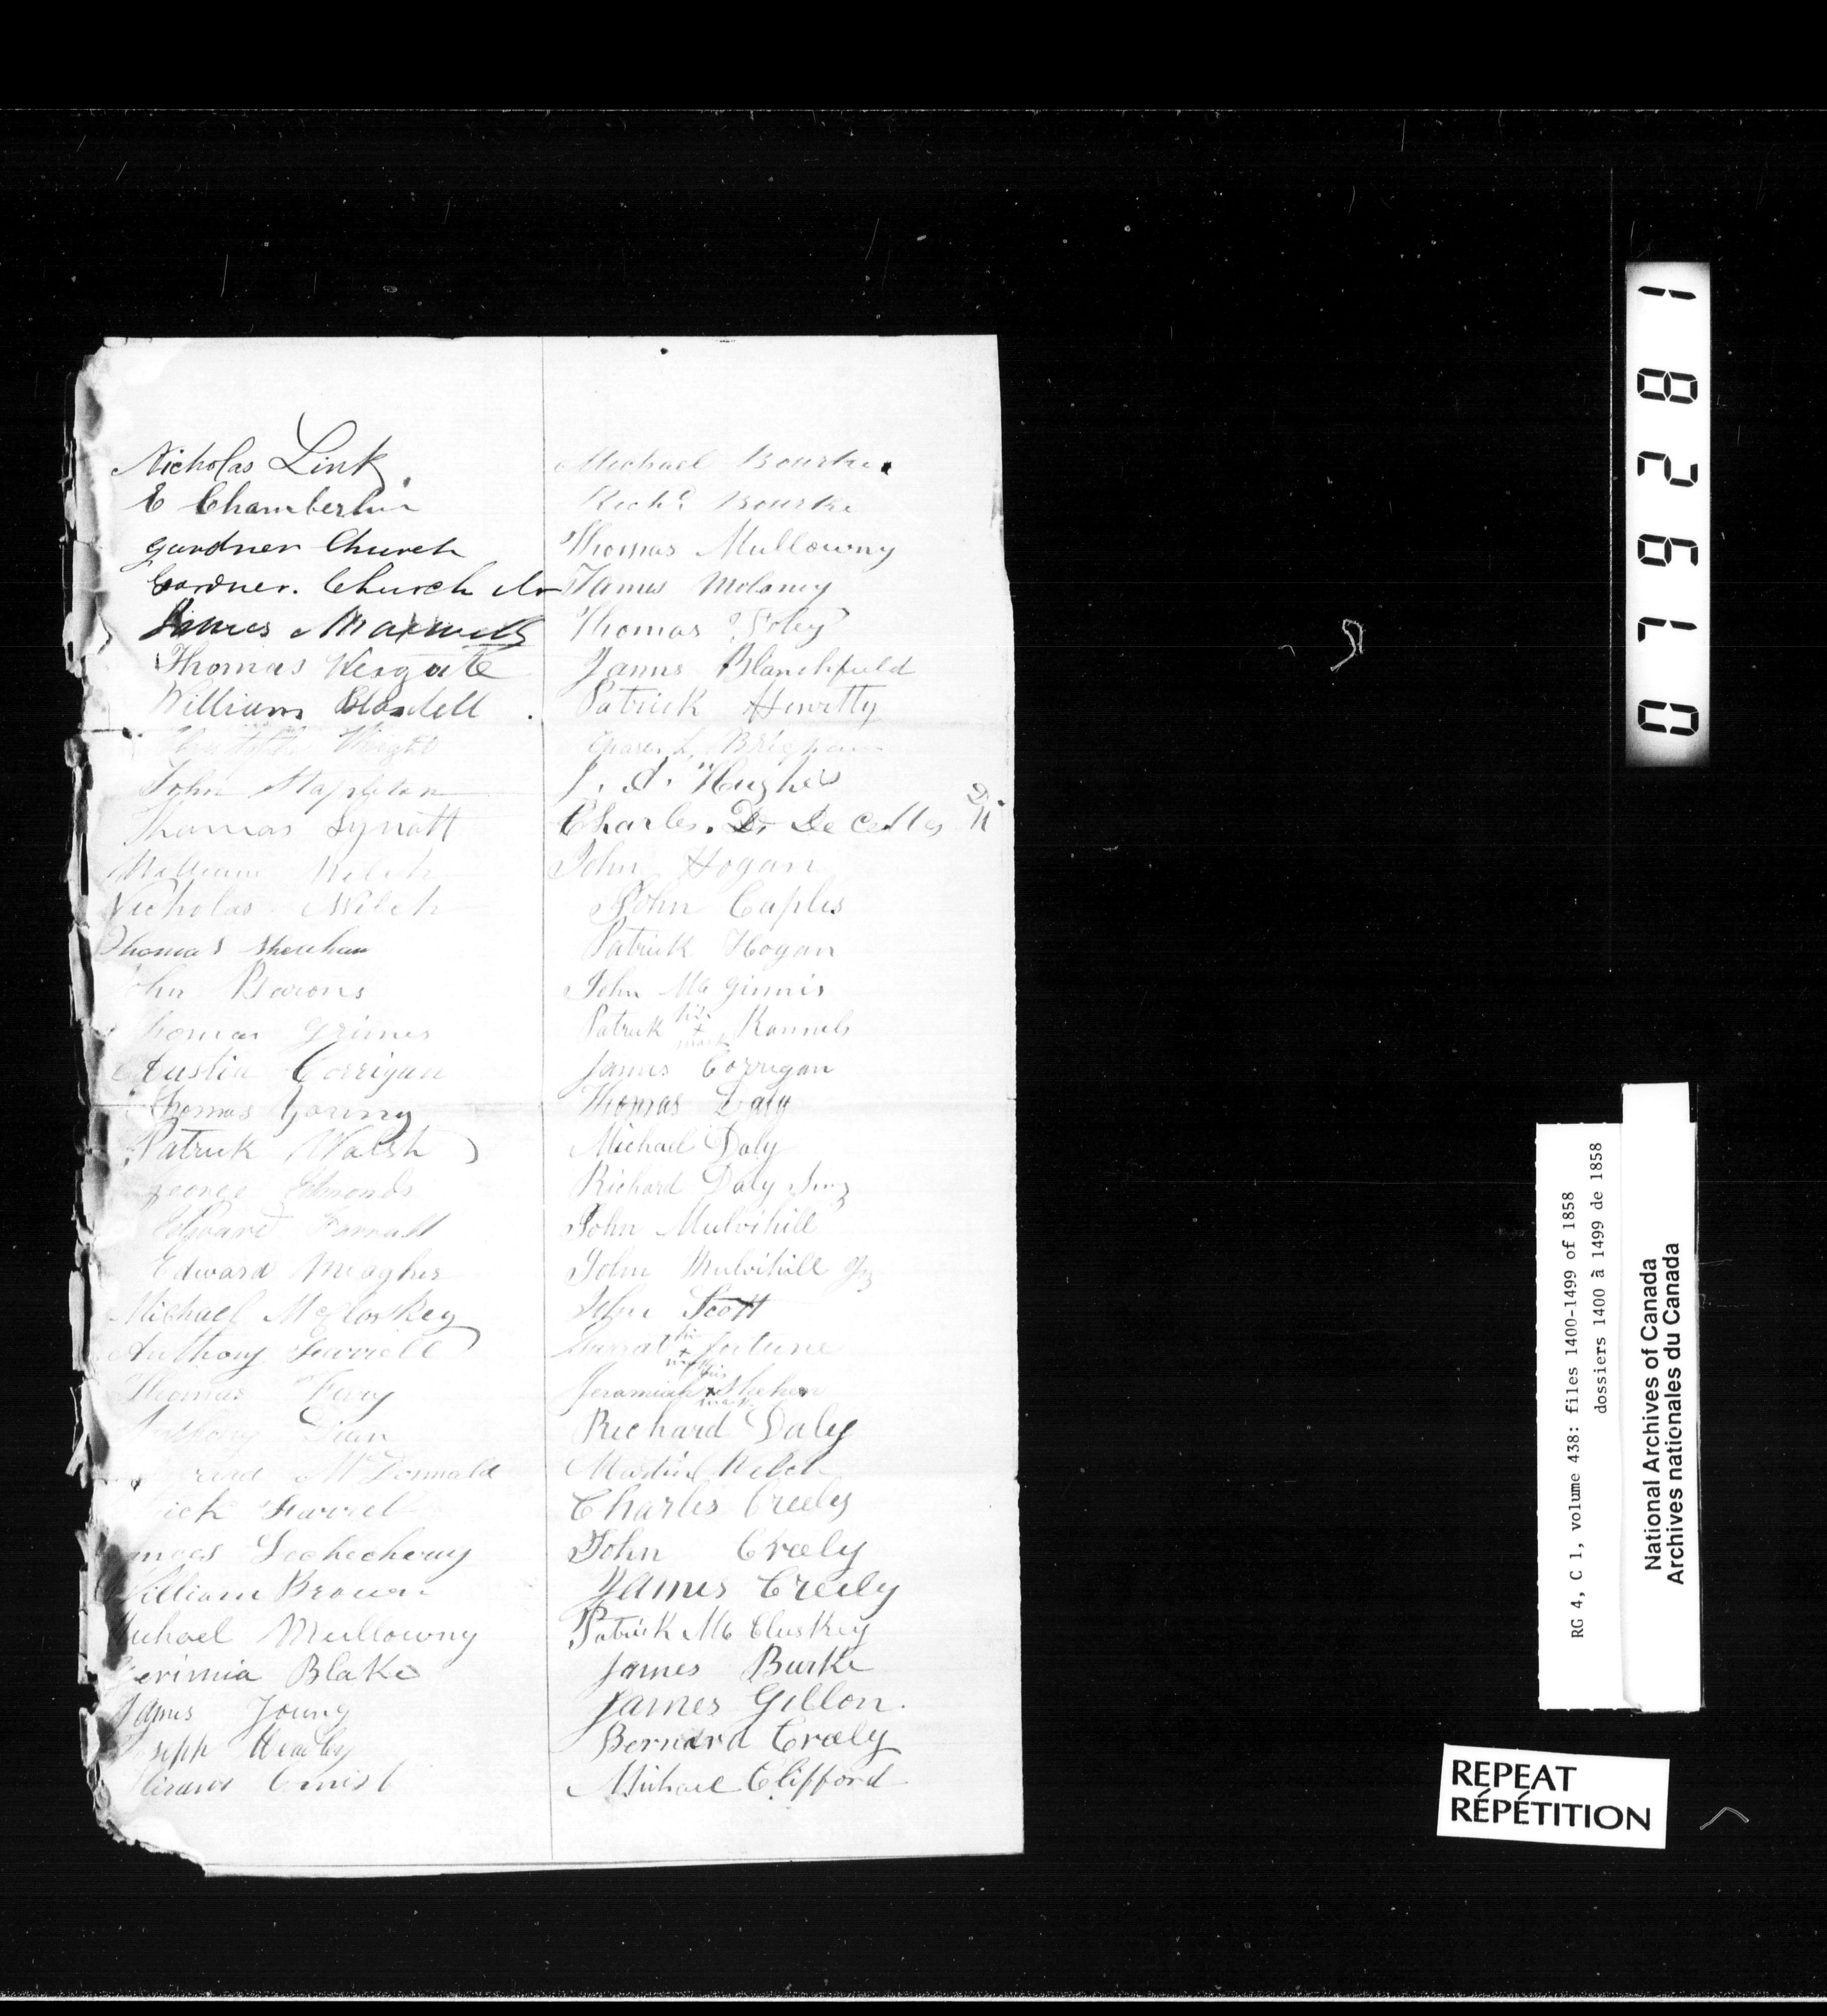 Nicholas Link
E Chamberlin
Gardner Church
Gardner. Church Jr
James Maxwell
Thomas
William Blasdell
Wright
John Stapleton
Thomas Synott
William Welch
Nicholas Welch
Thomas Sheehan
John Barons
Thomas Grimes
Austin Corrigan
Thomas Young
Patrick Walsh
George Edmonds
Edward
Edward Meagher
Michael McCloskey
Anthony Farrell
Thomas
Anthony
McDonnald
ick Farrel
William Brown
Michael Mullowny
Jerimia Blake
James Young
Joseph
Michael Bourke
Richd Bourke
Thomas Mullowny
James Moloney
Thomas Foley
James Blanchfield
Patrick
Brigham
J. A. Hughes
Charles. D. De Celles
John Hogan
John Caples
Patrick Hogan
John Mc Ginnis
Patrick his + mark
James Corrigan
Thomas Daly
Michael Daly
Richard Daly
John Mulvihill
John Mulvihill
John Scott
Garrat his + mark fortune
Jeramiah his + mark
Richard Daly
Martin Welch
Charles Creely
John Craely
James Creely
Patrick Mc Cluskey
James Burke
James Gillon.
Bernard Craely
Michael Clifford
07628 1
RG 4, C 1, volume 438: files 1400-1499 of 1858
dossiers 1400 à 1499 de 1858
National Archives of Canada
Archives nationales du Canada
REPEAT
RÉPÉTITION